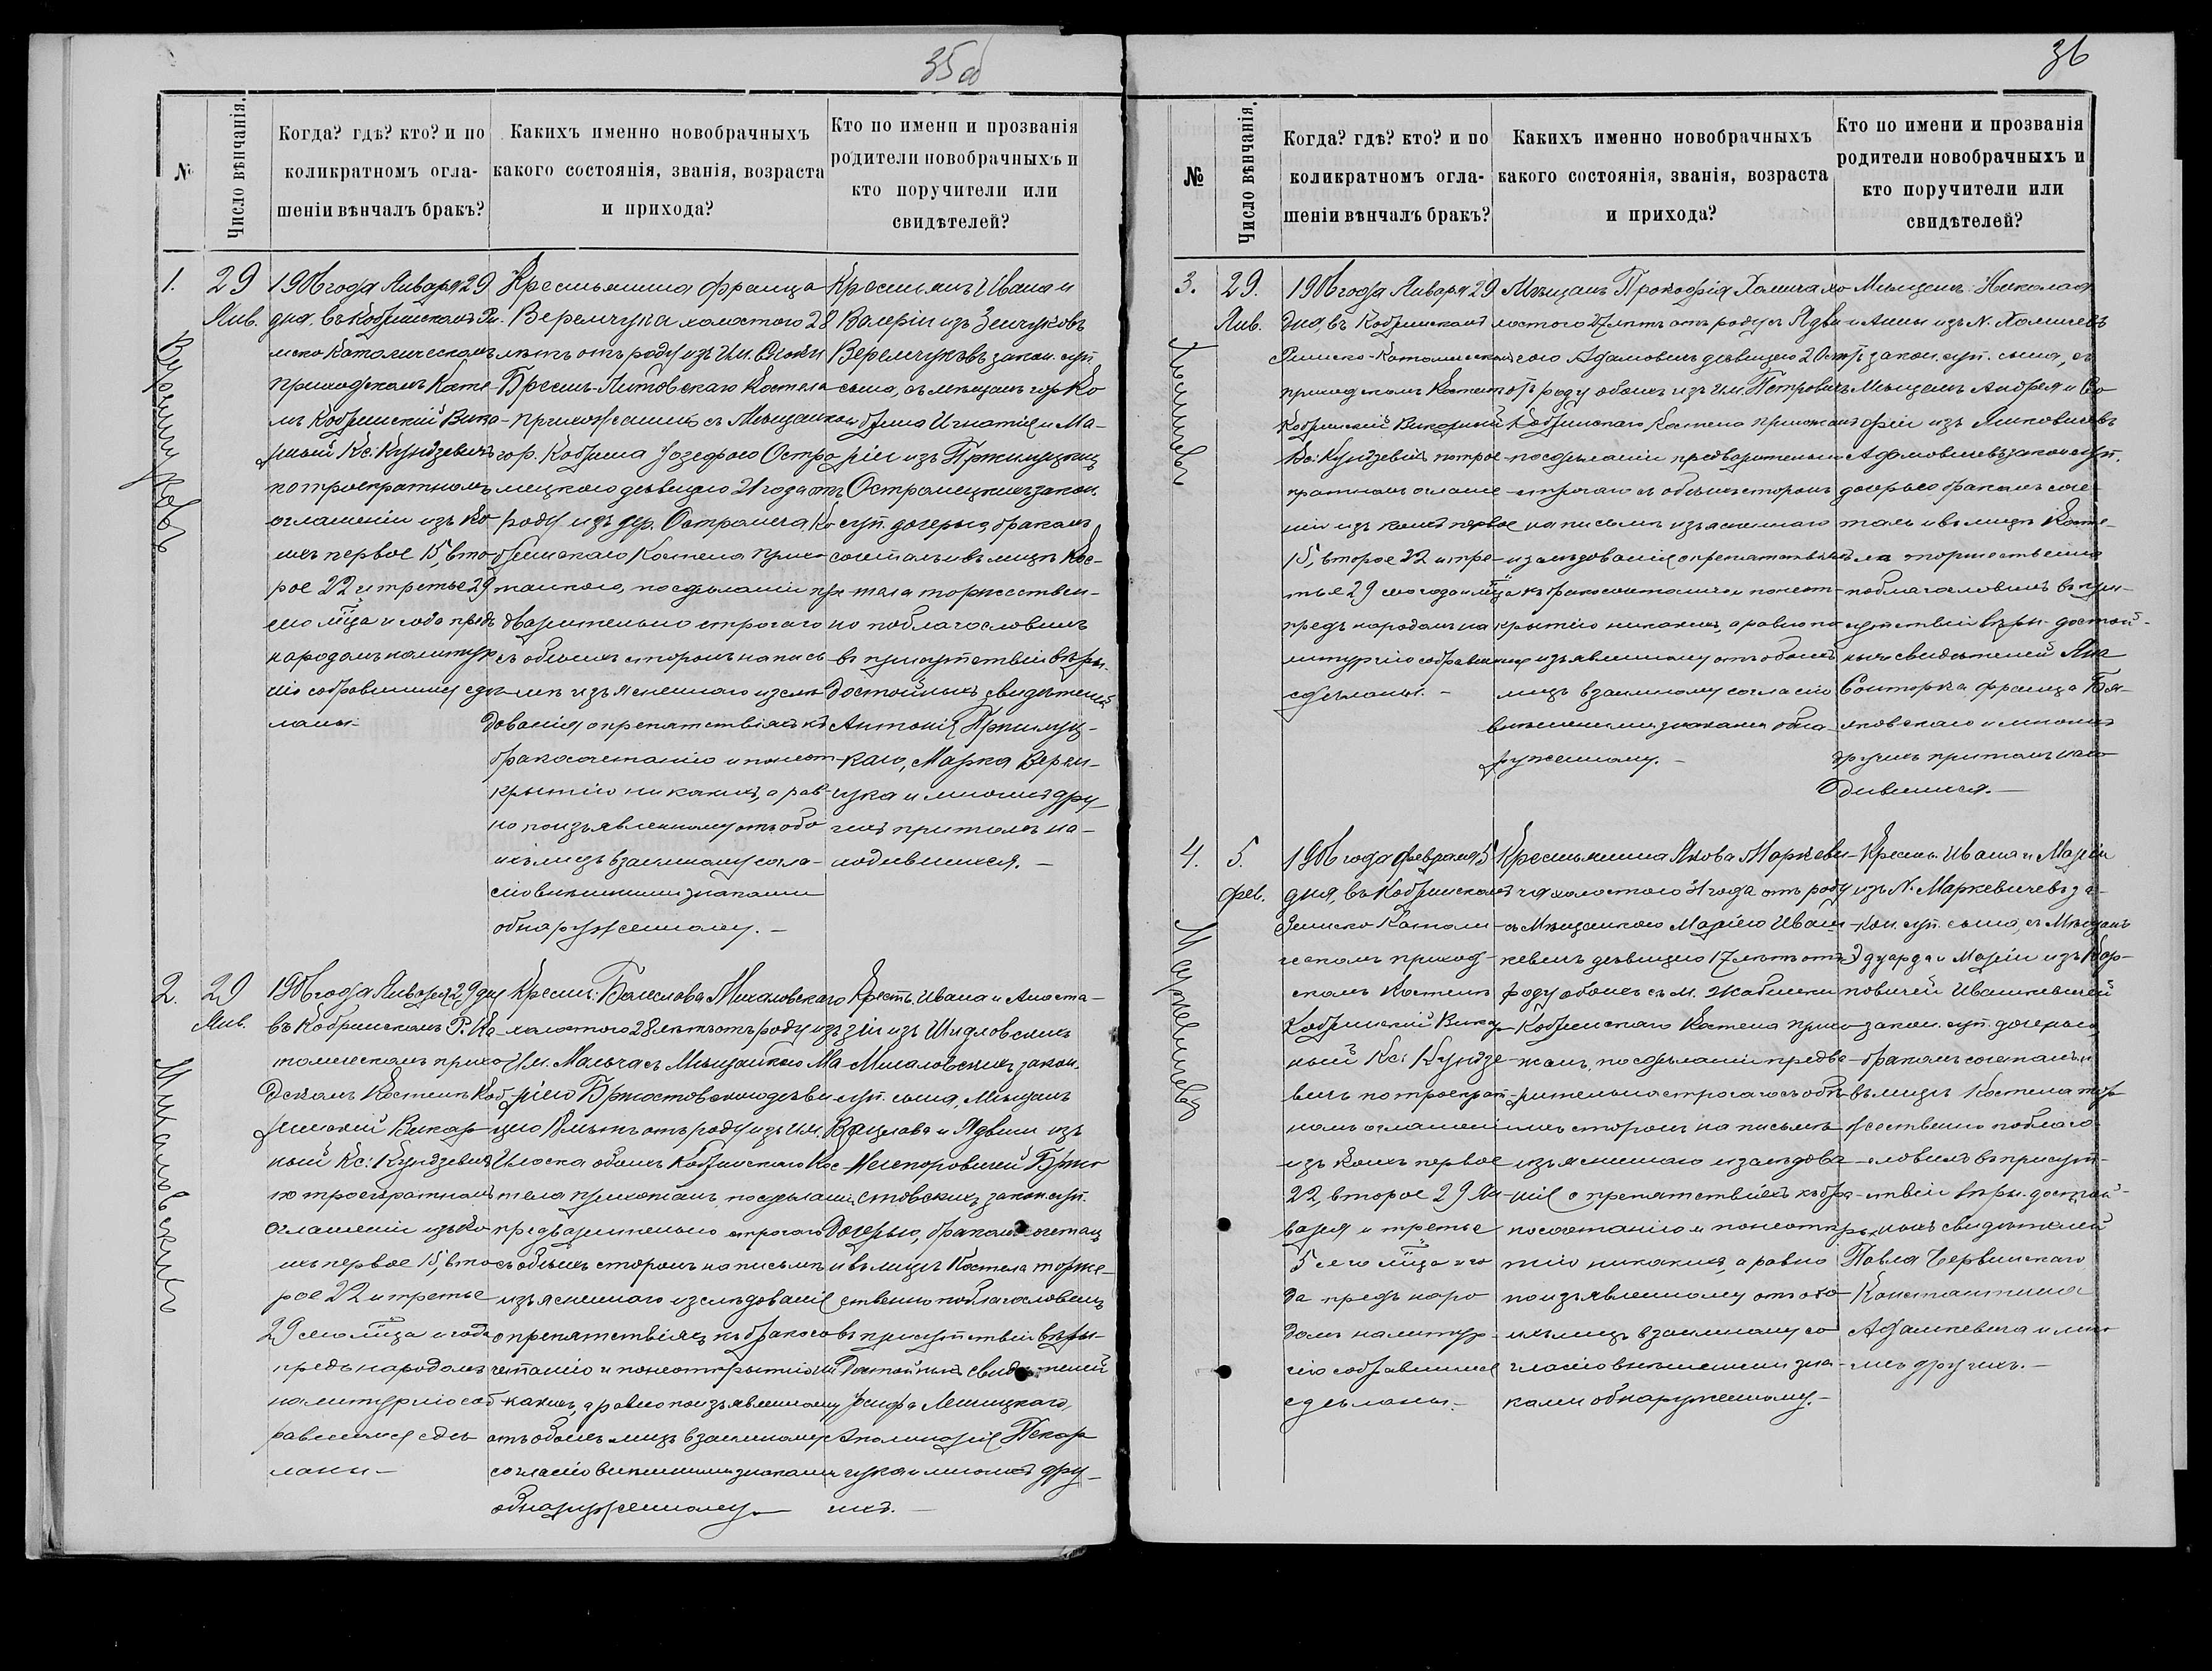 35об
№
Число вѣнчанія.
Когда? гдѣ? кто? и по
коликратномъ огла-
шеніи вѣнчалъ бракъ?
Какихъ именно новобрачныхъ
какого состоянія, званія, возраста
и прихода?
Кто по имени и прозванія
родители новобрачныхъ и
кто поручители или
свидѣтелей?
1.
29
Янв.
1906 года Января 29
дня, въ Кобринскомъ Ри-
мско Католическомъ
приходскомъ Косте-
лѣ Кобринскій Вика-
рный Кс: Кундзевичъ
по троекратномъ
оглашеніи изъ ко-
ихъ первое 15, вто-
рое 22 и третье 29
сего мца и года предъ
народомъ на литур-
гію собравшимся сдѣ-
ланы
Крестьянина Франца
Веремчука холостого 28
лѣтъ отъ роду изъ им.
Брестъ-Литовскаго Костела
прихожанина съ Мѣщанкою
гор. Кобрина Юзефою Остро-
мецкою дѣвицею 21 года отъ
роду изъ дер. Остромеча Ко-
бринскаго Костела прихо-
жанкою, по сдѣланіи пре-
дварительно строгаго
съ обѣихъ сторонъ на пись-
мѣ изъясненнаго изслѣ-
дованія о препятствіяхъ къ
бракосочетанію и по неот-
крытію никакихъ, а рав-
но по изъявленному отъ обо-
ихъ лицъ взаимному согла-
сію внѣшними знаками
обнаруженному. —
Крестьянъ Ивана и
Валеріи изъ Зенчуковъ
Веремчуковъ закон. суп.
сына, съ мѣщанъ гор. Ко-
брина Игнатія и Ма-
ріи изъ Пржилуцкихъ
Остромецкихъ закон.
суп. дочерью, бракомъ
сочеталъ и въ лицѣ Кос-
тела торжествен-
но поблагословилъ
въ присутствіи вѣры-
достойныхъ свидѣтелей
Антонія Пржилуц-
каго, Марка Верем-
чука и многихъ дру-
гихъ при томъ на-
ходившихся. —
2.
29
Янв.
1906 года Января 29 дня
въ Кобринскомъ Р. Ка-
толическомъ прихо-
дскомъ Костелѣ Коб-
ринскій Викар-
ный Кс: Кундзевичъ
по троекратномъ
оглашеніи изъ ко-
ихъ первое 15, вто-
рое 22 и третье
29 сего мца и года
предъ народомъ
на литургію соб-
равшимся сдѣ-
ланы —
Крестн: Болеслава Михаловскаго
холостого 28 лѣтъ отъ роду изъ
Им. Мальча съ Мѣщанкою Ма-
ріею Бржостовскою дѣви-
цею 18 лѣтъ отъ роду изъ им.
Илоска обоихъ Кобринскаго Кос-
тела прихожанъ, по сдѣланіи
предварительно строгаго
съ обѣихъ сторонъ на письмѣ
изъясненнаго изслѣдованія
о препятствіяхъ къ бракосо-
четанію и по неоткрытію ни-
какихъ, а равно по изъявленному
отъ обоихъ лицъ взаимному
согласію внѣшними знаками
обнаруженному —
Крестъ. Ивана и Анаста-
зіи изъ Шидловскихъ
Михаловскихъ закон.
суп. сына, Мѣщанъ
Вацлава и Ядвиги изъ
Бржо-
стовскихъ закон. суп.
дочерью, бракомъ сочеталъ
и въ лицѣ Костела торже-
ственно поблагословилъ
въ присутствіи вѣры-
достойныхъ свидѣтелей
Іосифа Лешицкаго,
Аполинарія Пекар-
чука и многихъ дру-
гихъ. —
36
№
Число вѣнчанія.
Когда? гдѣ? кто? и по
коликратномъ огла-
шеніи вѣнчалъ бракъ?
Какихъ именно новобрачныхъ
какого состоянія, званія, возраста
и прихода?
Кто по имени и прозванія
родители новобрачныхъ и
кто поручители или
свидѣтелей?
3.
29.
Янв.
1906 года Января 29
дня въ Кобринскомъ
Римско-Католическомъ
приходскомъ Костелѣ
Кобринскій Викарный
Кс: Кундзевичъ по трое-
кратномъ оглаше-
ніи изъ коихъ первое
15, второе 22 и тре-
тье 29 сего года и мца
предъ народомъ на
литургію собравшимся
сдѣланы. —
Мѣщан. Прокофія Хомича хо-
лостого 27 лѣтъ отъ роду съ Ядви-
гою Адамовичъ дѣвицею 20 лѣтъ
отъ роду обоихъ изъ им. Петровичъ
Кобринскаго Костела прихожанъ
по сдѣланіи предварительно
строгаго съ обѣихъ сторонъ
на письмѣ изъясненнаго
изслѣдованія о препятствіяхъ
къ бракосочетанію и по неот-
крытію никакихъ, а равно по
изъявленному отъ обоихъ
лицъ взаимному согласію
внѣшними знаками обна-
руженному. —
Мѣщанъ: Николая
и Анны изъ N. Хомичевъ
закон. суп. сына, съ
Мѣщанъ Андрея и Со-
фіи изъ Янковичевъ
Адамовичевъ закон. суп.
дочерью бракомъ соче-
талъ и въ лицѣ Косте-
ла торжественно
поблагословилъ въ при-
сутствіи вѣры-достой-
ныхъ свидѣтелей Яна
Франца
и многихъ
другихъ при томъ нахо-
дившихся. —
4.
5.
Фев.
1906 года Февраля 5
дня, въ Кобринскомъ
Римско Католи-
ческомъ приход-
скомъ Костелѣ
Кобринскій Викар-
ный Кс: Кундзе-
вичъ по троекрат-
номъ оглашеніи
изъ коихъ первое
22, второе 29 Ян-
варя и третье
5 сего мца и го-
да предъ наро-
домъ на литур-
гію собравшимся
сдѣланы. —
Крестьянина Якова Маркеви-
ча холостого 31 года отъ роду
съ Мѣщанкою Маріею Иваш-
кевичъ дѣвицею 17 лѣтъ отъ
роду обоихъ съ м. Жабинки
Кобринскаго Костела прихо-
жанъ, по сдѣланіи предва-
рительно строгаго съ обѣ-
ихъ сторонъ на письмѣ
изъясненнаго изслѣдова-
нія о препятствіяхъ къ бра-
косочетанію и по неоткры-
тію никакихъ, а равно
по изъявленному отъ обо-
ихъ лицъ взаимному со-
гласію внѣшними зна-
ками обнаруженному. —
Крестн. Ивана и Маріи
изъ N. Маркевичевъ за-
кон. суп. сына, съ Мѣщанъ
Эдуарда и Маріи изъ Кар-
повичей Ивашкевичей
закон. суп. дочерью,
бракомъ сочеталъ и
въ лицѣ Костела тор-
жественно поблаго-
словилъ въ присут-
ствіи вѣры. достой-
ныхъ свидѣтелей
Павла Червинскаго
Константина
Адашкевича и мно-
гихъ другихъ. —
Веремчуковъ
Михаловскихъ
Хомичевъ
Маркевичевъ